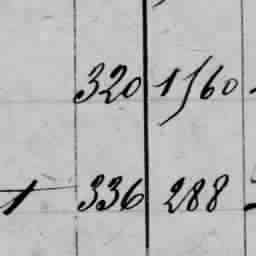 320 1560
1 336 288